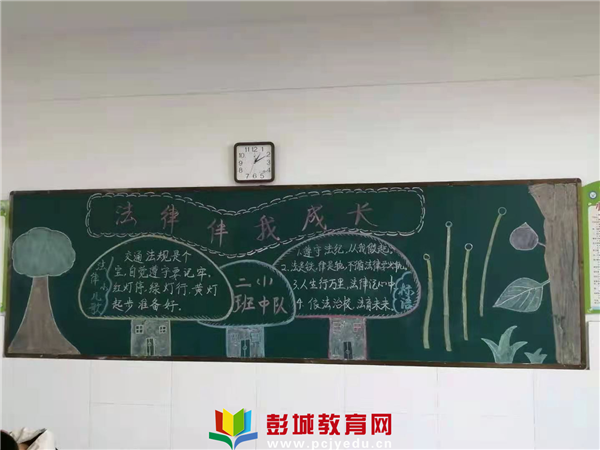 法律伴我成长
法律小儿歌
交通法规是个
宝,自觉遵守要记牢,
红灯停,绿灯行,黄灯
起步准备好。
二(1)
班中队
1.遵守法纪,从我做起。
3.人生行万里,法律记心中。
4.依法治校,法育未来。
标语
彭城教育网
www.pcjyedu.cn